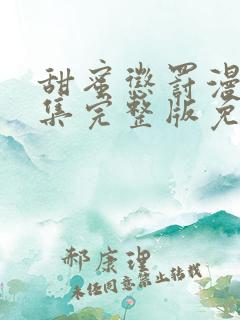 甜蜜惩罚漫
集完整版免
郝康理
未经同意禁止转载